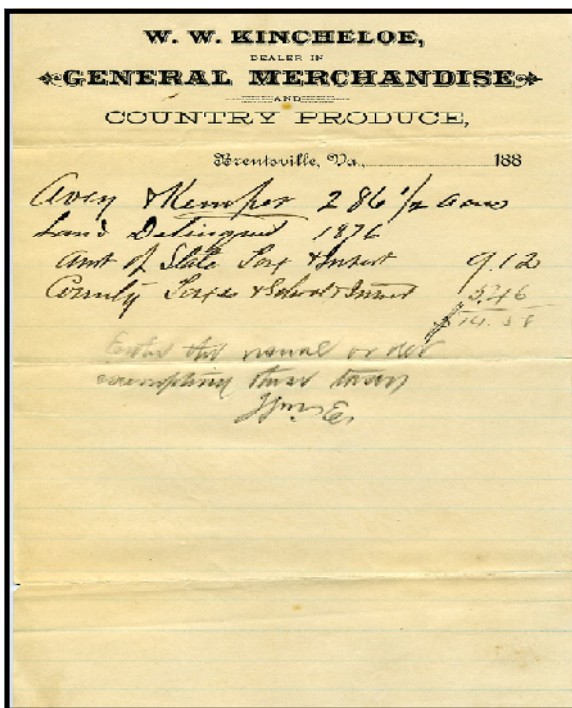 W. W. KINCHELOE,
DEALER IN
GENERAL MERCHANDISE
AND
COUNTRY PRODUCE,
Brentsville, Va., 188
Avery & Kemper 286 1/2 acres
Land Delinquent 1876
Amt of State Tax & Interest 9.12
County Taxes & School & Interest 5.46
$14.58
Enter the usual order
exempting these taxes